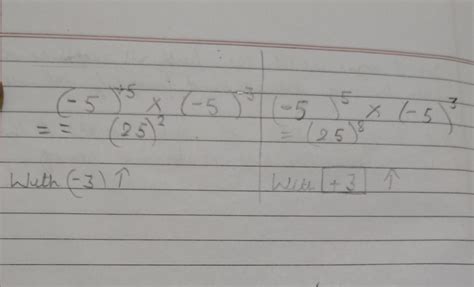 (-5)⁺⁵ × (-5)⁻³
= = (25)²
With (-3) ↑
(-5)⁵ × (-5)³
= (25)⁸
With +3 ↑